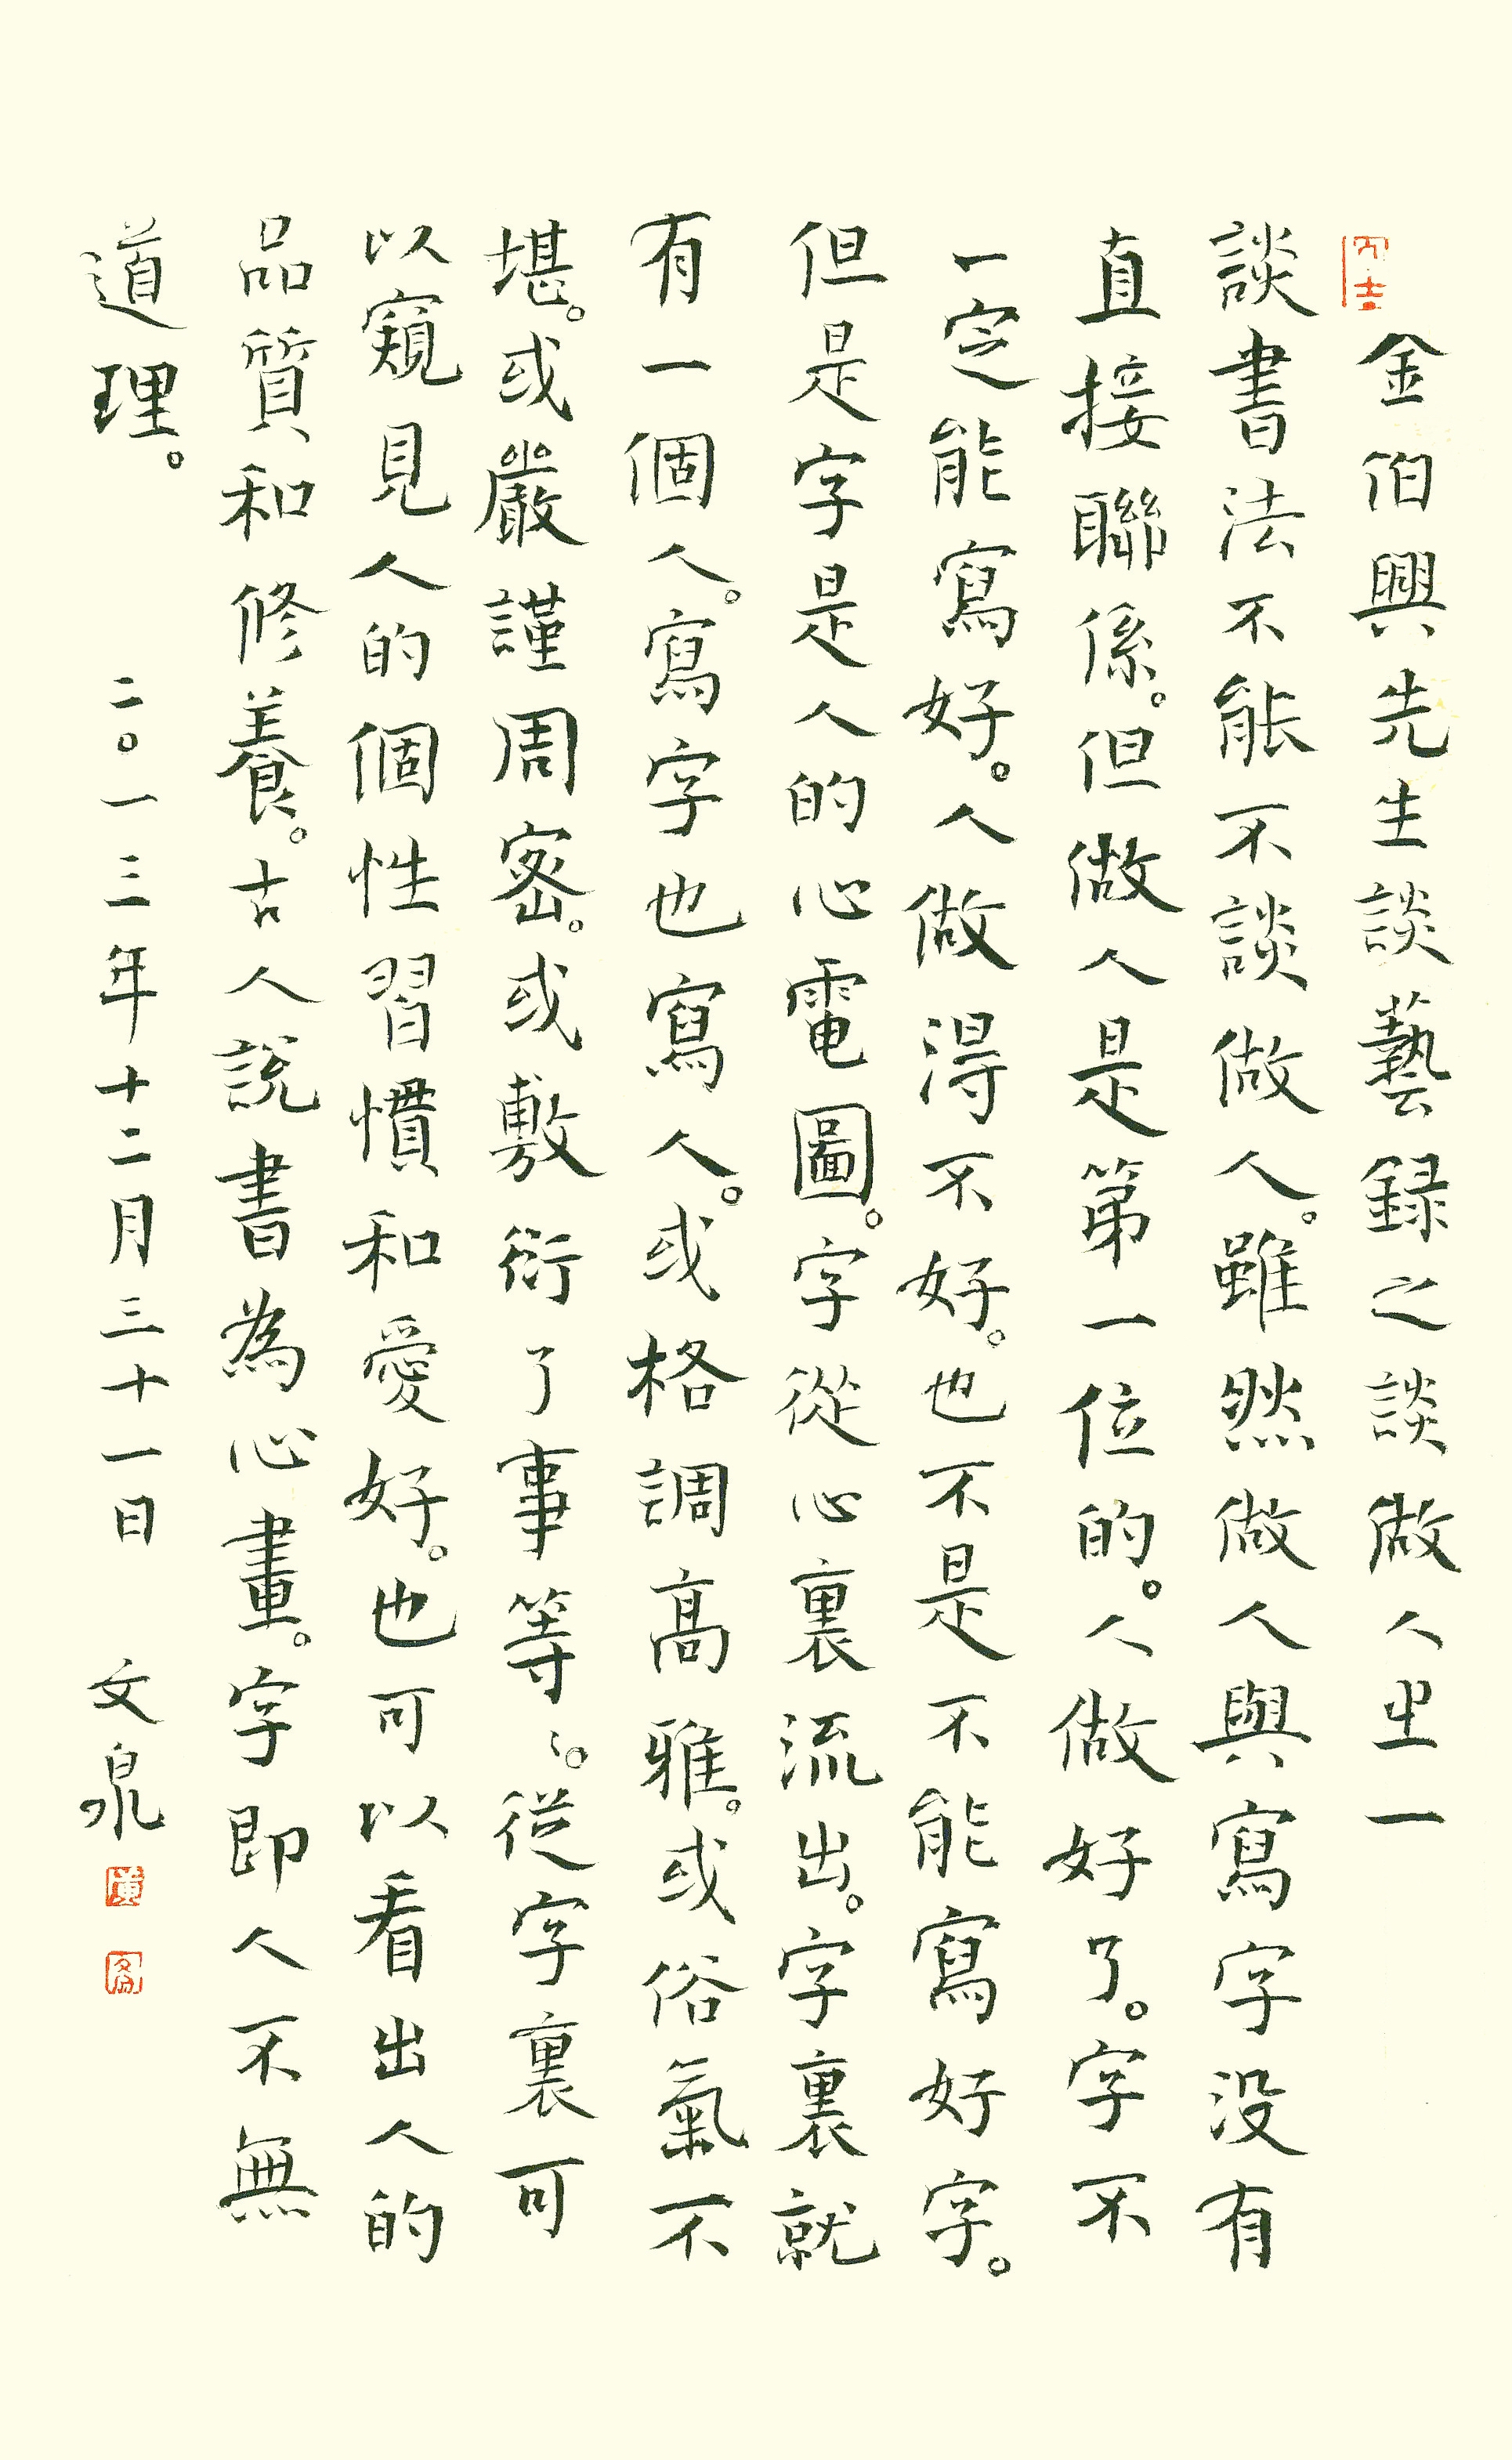 金伯興先生談藝録之談做人㞢一
談書法不能不談做人。雖然做人與寫字没有
直接聯係。但做人是第一位的。人做好了。字不
一定能寫好。人做得不好。也不是不能寫好字。
但是字是人的心電圖。字從心裏流出。字裏就
有一個人。寫字也寫人。或格調高雅。或俗氣不
堪。或嚴謹周密。或敷衍了事等等。從字裏可
以窺見人的個性習慣和愛好。也可以看出人的
品質和修養。古人説書為心畫。字即人不無
道理。
二〇一三年十二月三十一日 文泉